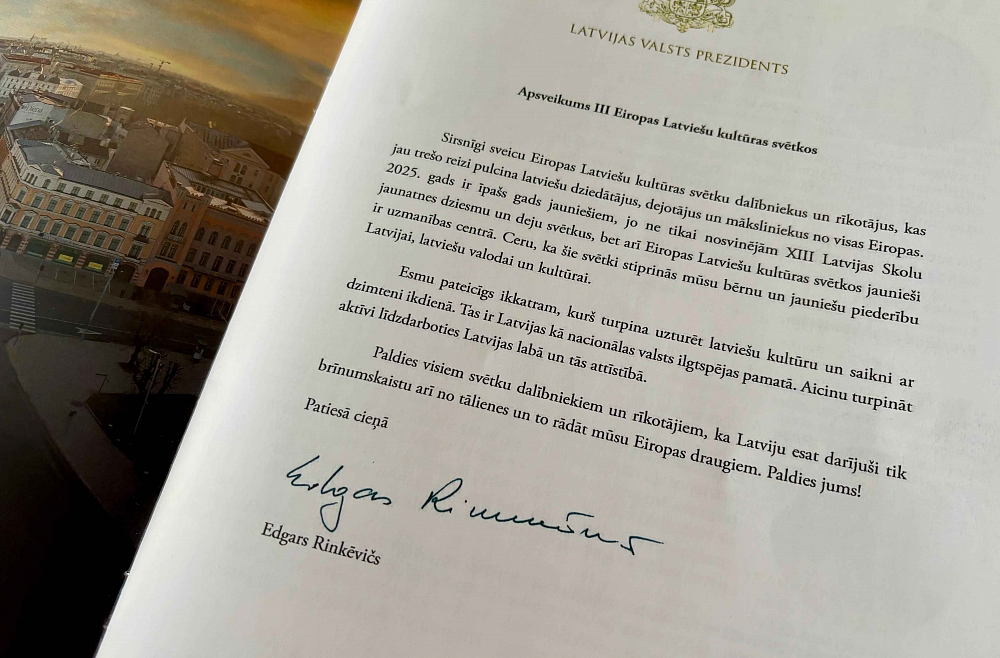 LATVIJAS VALSTS PREZIDENTS
Apsveikums III Eiropas Latviešu kultūras svētkos
Sirsnīgi sveicu Eiropas Latviešu kultūras svētku dalībniekus un rīkotājus, kas
jau trešo reizi pulcina latviešu dziedātājus, dejotājus un māksliniekus no visas Eiropas.
2025. gads ir īpašs gads jauniešiem, jo ne tikai nosvinējām XIII Latvijas Skolu
jaunatnes dziesmu un deju svētkus, bet arī Eiropas Latviešu kultūras svētkos jaunieši
ir uzmanības centrā. Ceru, ka šie svētki stiprinās mūsu bērnu un jauniešu piederību
Latvijai, latviešu valodai un kultūrai.
Esmu pateicīgs ikkatram, kurš turpina uzturēt latviešu kultūru un saikni ar
dzimteni ikdienā. Tas ir Latvijas kā nacionālas valsts ilgtspējas pamatā. Aicinu turpināt
aktīvi līdzdarboties Latvijas labā un tās attīstībā.
Paldies visiem svētku dalībniekiem un rīkotājiem, ka Latviju esat darījuši tik
brīnumskaistu arī no tālienes un to rādāt mūsu Eiropas draugiem. Paldies jums!
Patiesā cieņā
Edgars Rinkēvičs
Edgars Rinkēvičs